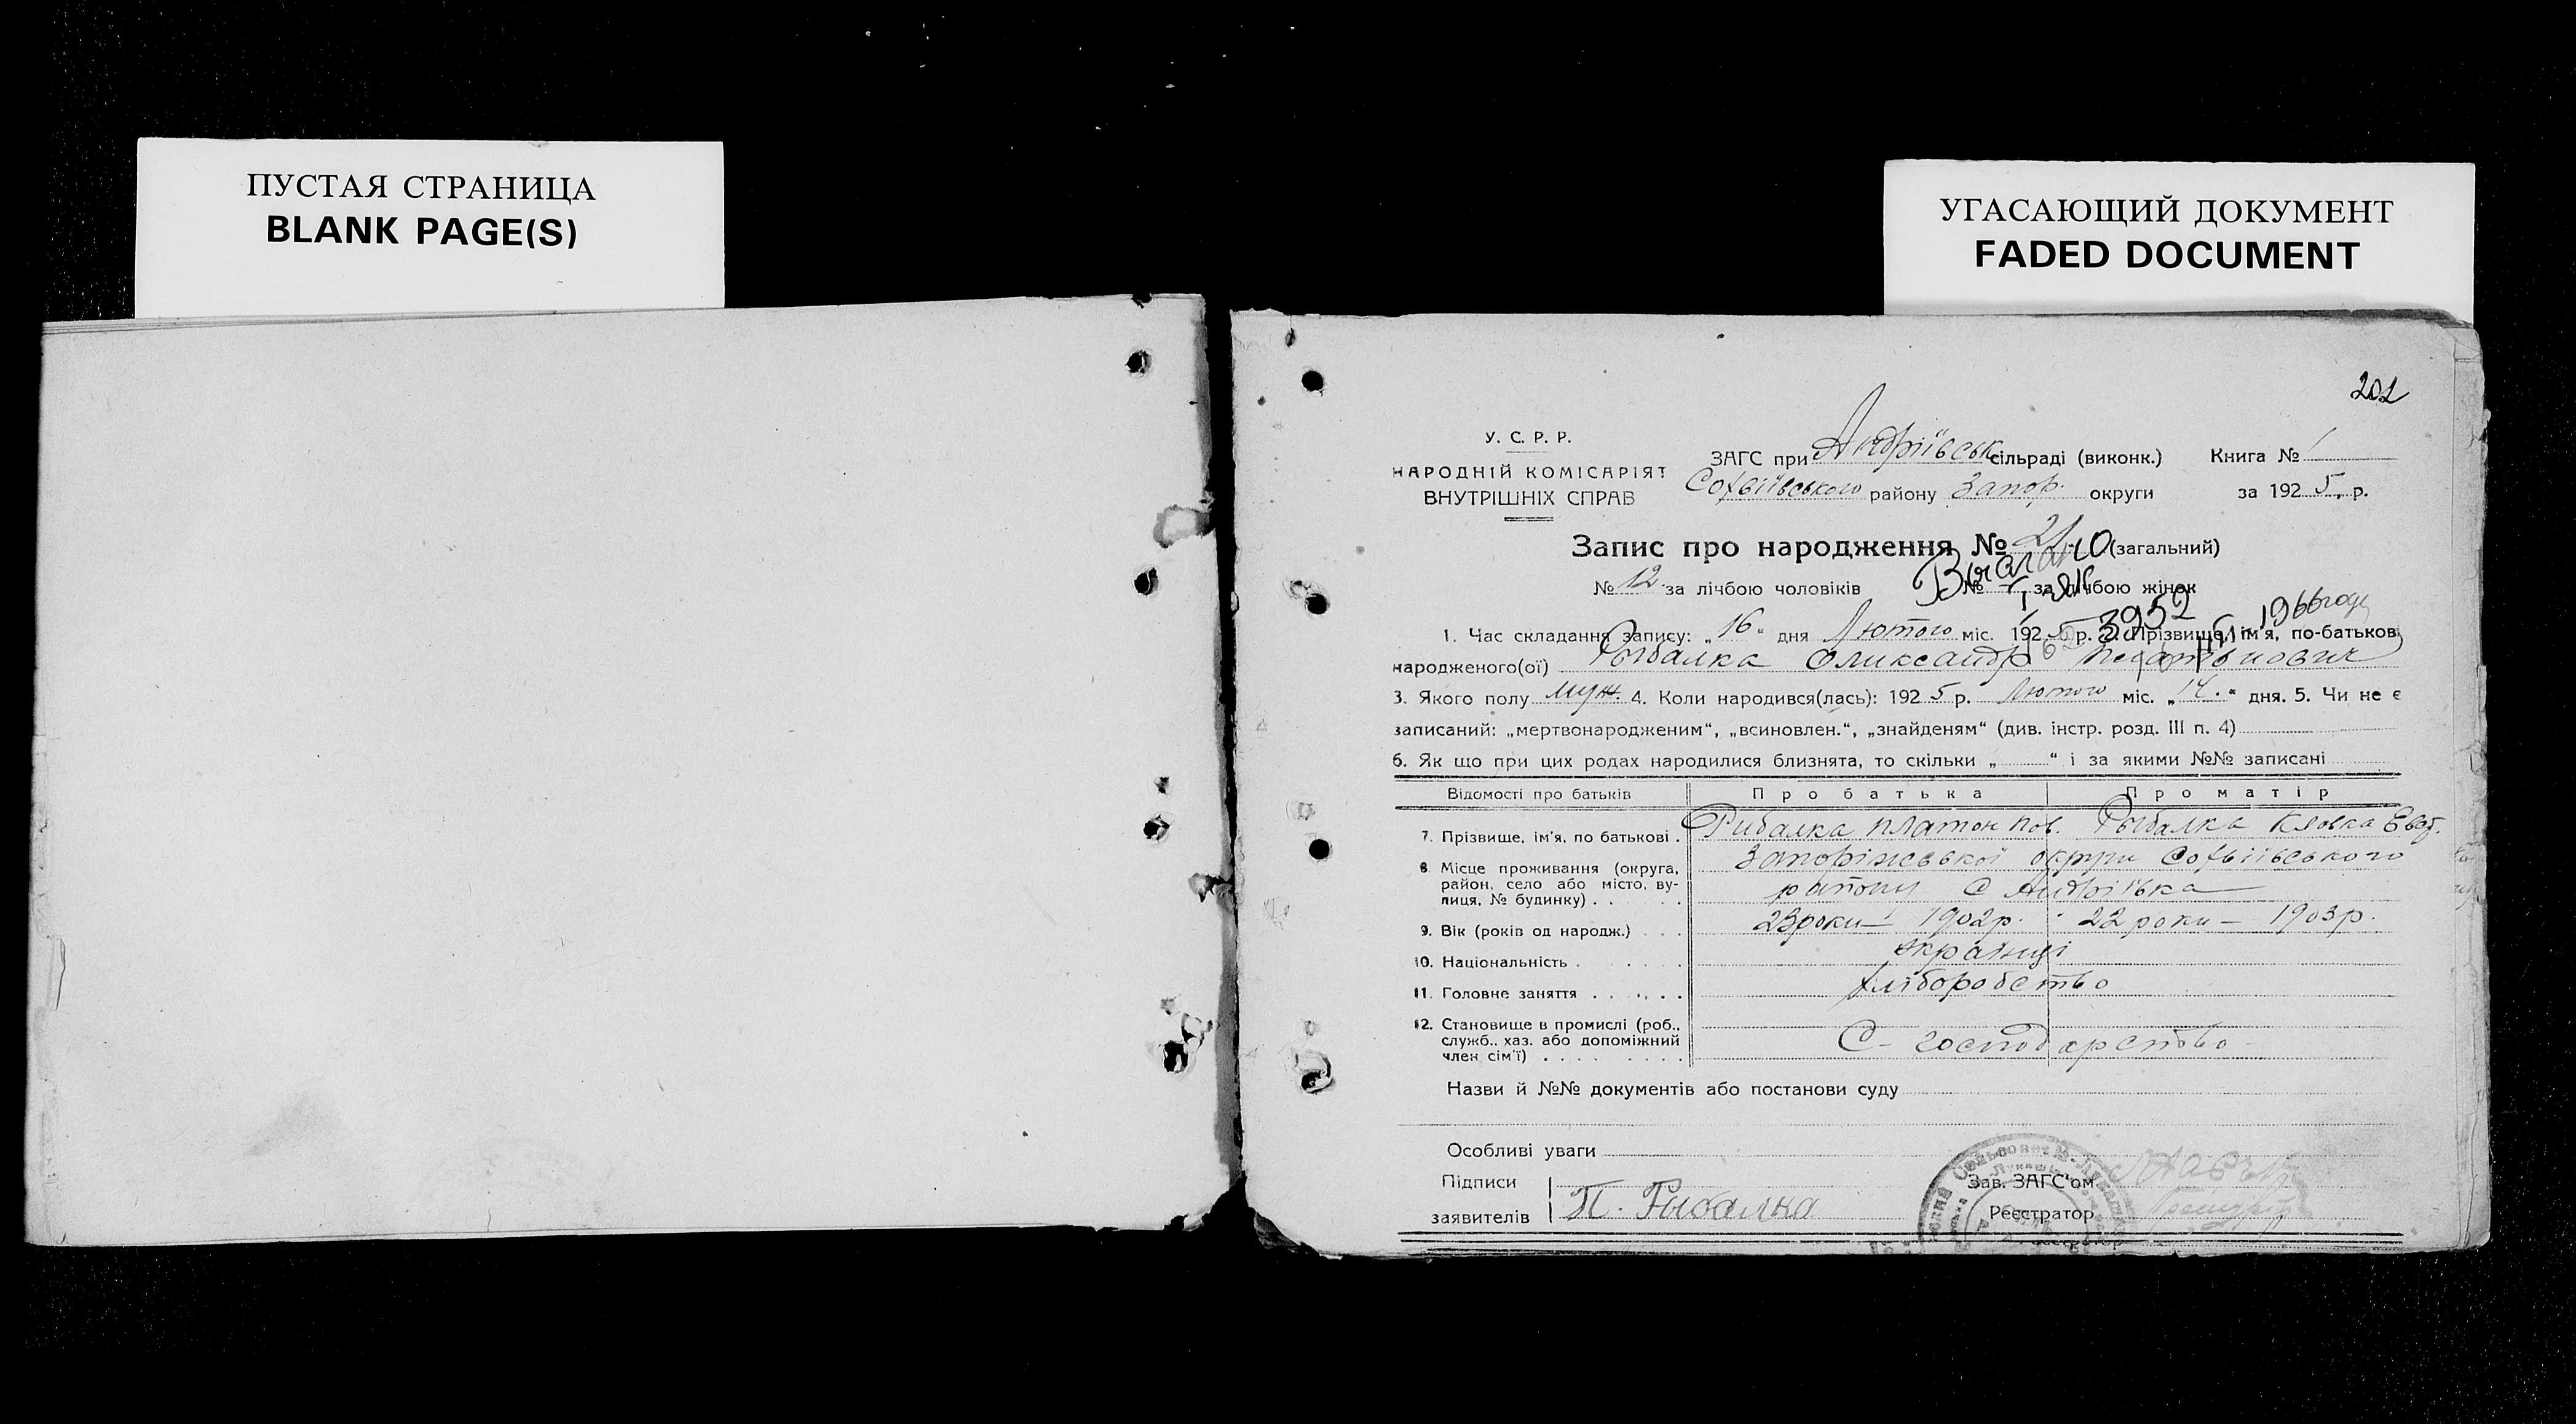 ПУСТАЯ СТРАНИЦА
BLANK PAGE(S)
УГАСАЮЩИЙ ДОКУМЕНТ
FADED DOCUMENT
202
У. С. Р. Р.
НАРОДНІЙ КОМІСАРІЯТ
ВНУТРІШНІХ СПРАВ
ЗАГС при Андріївськ сільраді (виконк.) Книга № 1
Софіївського району Запор. округи за 1925 р.
Запис про народження № 21 (загальний)
№ 12 за лічбою чоловіків № за лічбою жінок
3952 1966 году
1. Час складання запису: „16" дня Лютого міс. 1925 р. 2. Прізвище, ім'я, по-батькові
народженого(ої) Рыбалка Олександр
3. Якого полу муж. 4. Коли народився(лась): 1925 р. Лютого міс. „14." дня. 5. Чи не є
записаний: „мертвонародженим", „всиновлен.", „знайденям" (див. інстр. розд. III п. 4)
6. Як що при цих родах народилися близнята, то скільки „ " і за якими №№ записані
Відомості про батьків Про батька Про матір
7. Прізвище, ім'я, по батькові . Рибалка Платон Пав. Рыбалка
8. Місце проживання (округа, район, село або місто, вулиця, № будинку) . . . . Запоріжської округи Софіївського
району С Андріївка
9. Вік (років од народж.) . . . 23 роки – 1902 р. 22 роки – 1903 р.
10. Національність . . . . . . украінці
11. Головне заняття . . . . . . хліборобство
12. Становище в промислі (роб., служб., хаз. або допоміжний член сім'ї) . . . . . . . . . С- господарство
Назви й №№ документів або постанови суду
Особливі уваги
Підписи
заявителів П. Рыбалка
Зав. ЗАГС'ом
Реєстратор